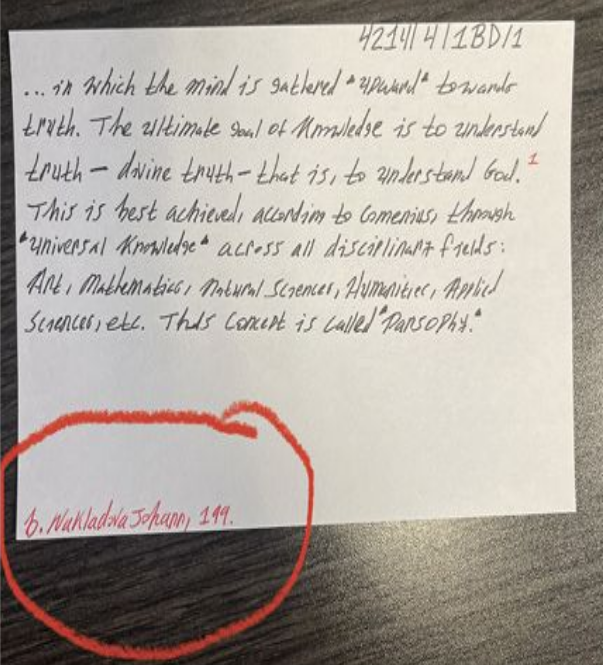 4214/4/1BD/1
... in which the mind is gathered "upward" towards
truth. The ultimate goal of Knowledge is to understand
truth — divine truth — that is, to understand God. 1
This is best achieved, according to Comenius, through
"Universal Knowledge" across all disciplinary fields:
Art, Mathematics, Natural Sciences, Humanities, Applied
Sciences, etc. This concept is called "Pansophy."
b. Nakladova Johann, 199.